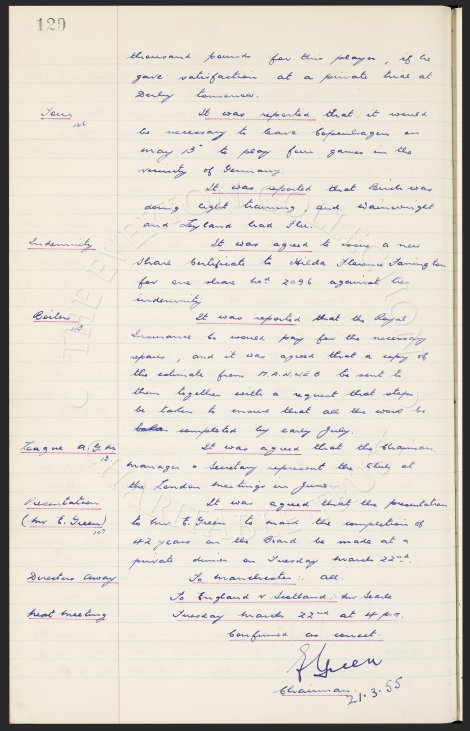 129
thousand pounds for this player, if he
gave satisfaction at a private trial at
Derby tomorrow.
Tour 126 It was reported that it would
be necessary to leave Copenhagen on
May 15 to play four games in the
vicinity of Germany.
It was reported that Birch was
doing light training, and Wainwright
and Leyland had Flu.
Indemnity It was agreed to issue a new
Share Certificate to Hilda Florence Farrington
for one share No. 2096 against her
indemnity
Boilers 113. It was reported that the Royal
Insurance Co would pay for the necessary
repairs, and it was agreed that a copy of
the estimate from be sent to
them together with a request that steps
be taken to ensure that all the work be
completed by early July.
League A.G.M It was agreed that the Chairman
Manager & Secretary represent the Club at
the London meetings in June.
Presentation It was agreed that the presentation
(Mr E. Green) 107 to Mr. E. Green to mark the completion of
42 years on the Board be made at a
private dinner on Tuesday March 22nd.
Directors Away To Manchester:- All.
To England v Scotland: Mr Searle
Next meeting Tuesday March 22nd at 4 p.m.
Confirmed as correct.
E Green
Chairman. 21.3.55
THE EVERTON COLLECTION